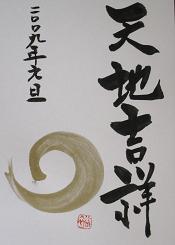 天地吉祥
二〇〇九年元旦